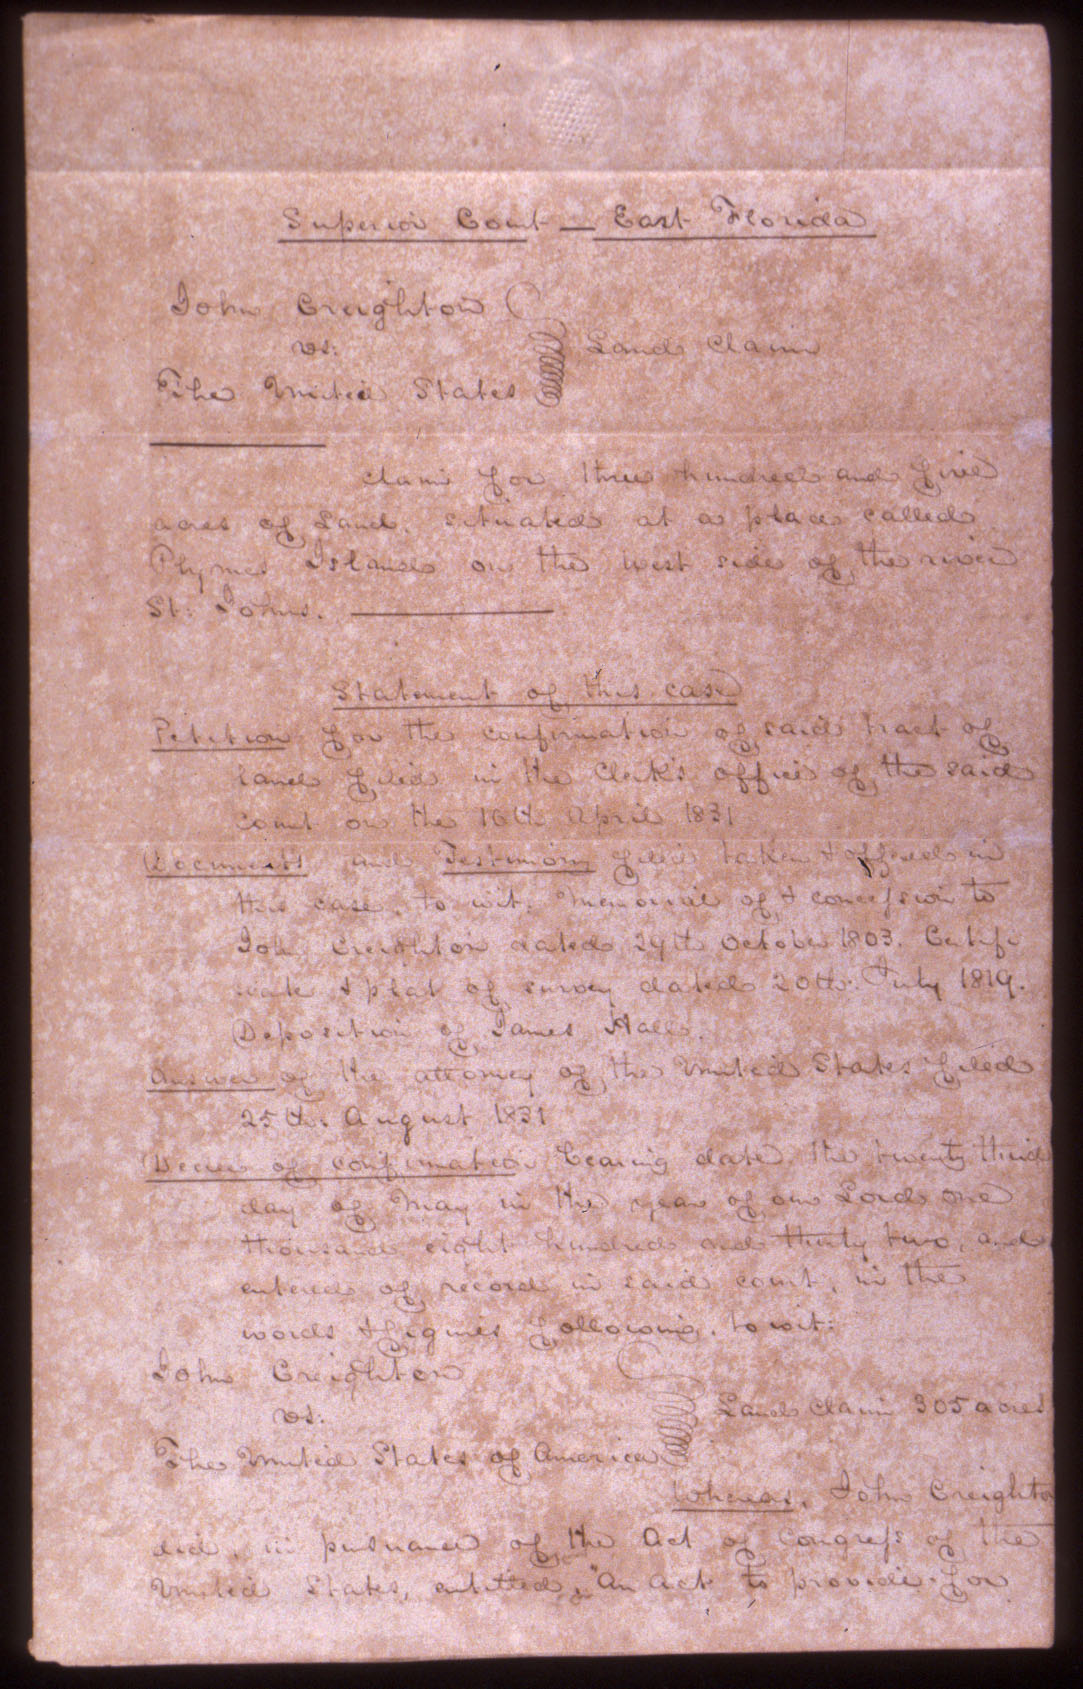 Superior Court — East Florida
John Creighton
vs:
Land Claim
The United States
Claim for three hundred and five
acres of Land, situated at a place called
Phymes Island on the west side of the river
St: Johns.
Statement of this case
Petition for the confirmation of said tract of
land filed in the Clerk's office of the said
court on the 16th April 1831
Documents and Testimony filed taken & offered in
this case, to wit: Memorial of & concession to
John Creighton dated 29th October 1803. Certifi
cate & plat of survey dated 20th: July 1819.
Deposition of James Hall.
Answer of the attorney of the United States filed
25th. August 1831
Decree of confirmation bearing date the twenty third
day of May in the year of our Lord one
thousand eight hundred and thirty two, and
entered of record in said court, in the
words & figures following, to wit:
John Creighton
vs:
Land claim 305 acres
The United States of America
Whereas, John Creighton
did, in pursuance of the Act of Congress of the
United States, entitled, "An Act to provide for